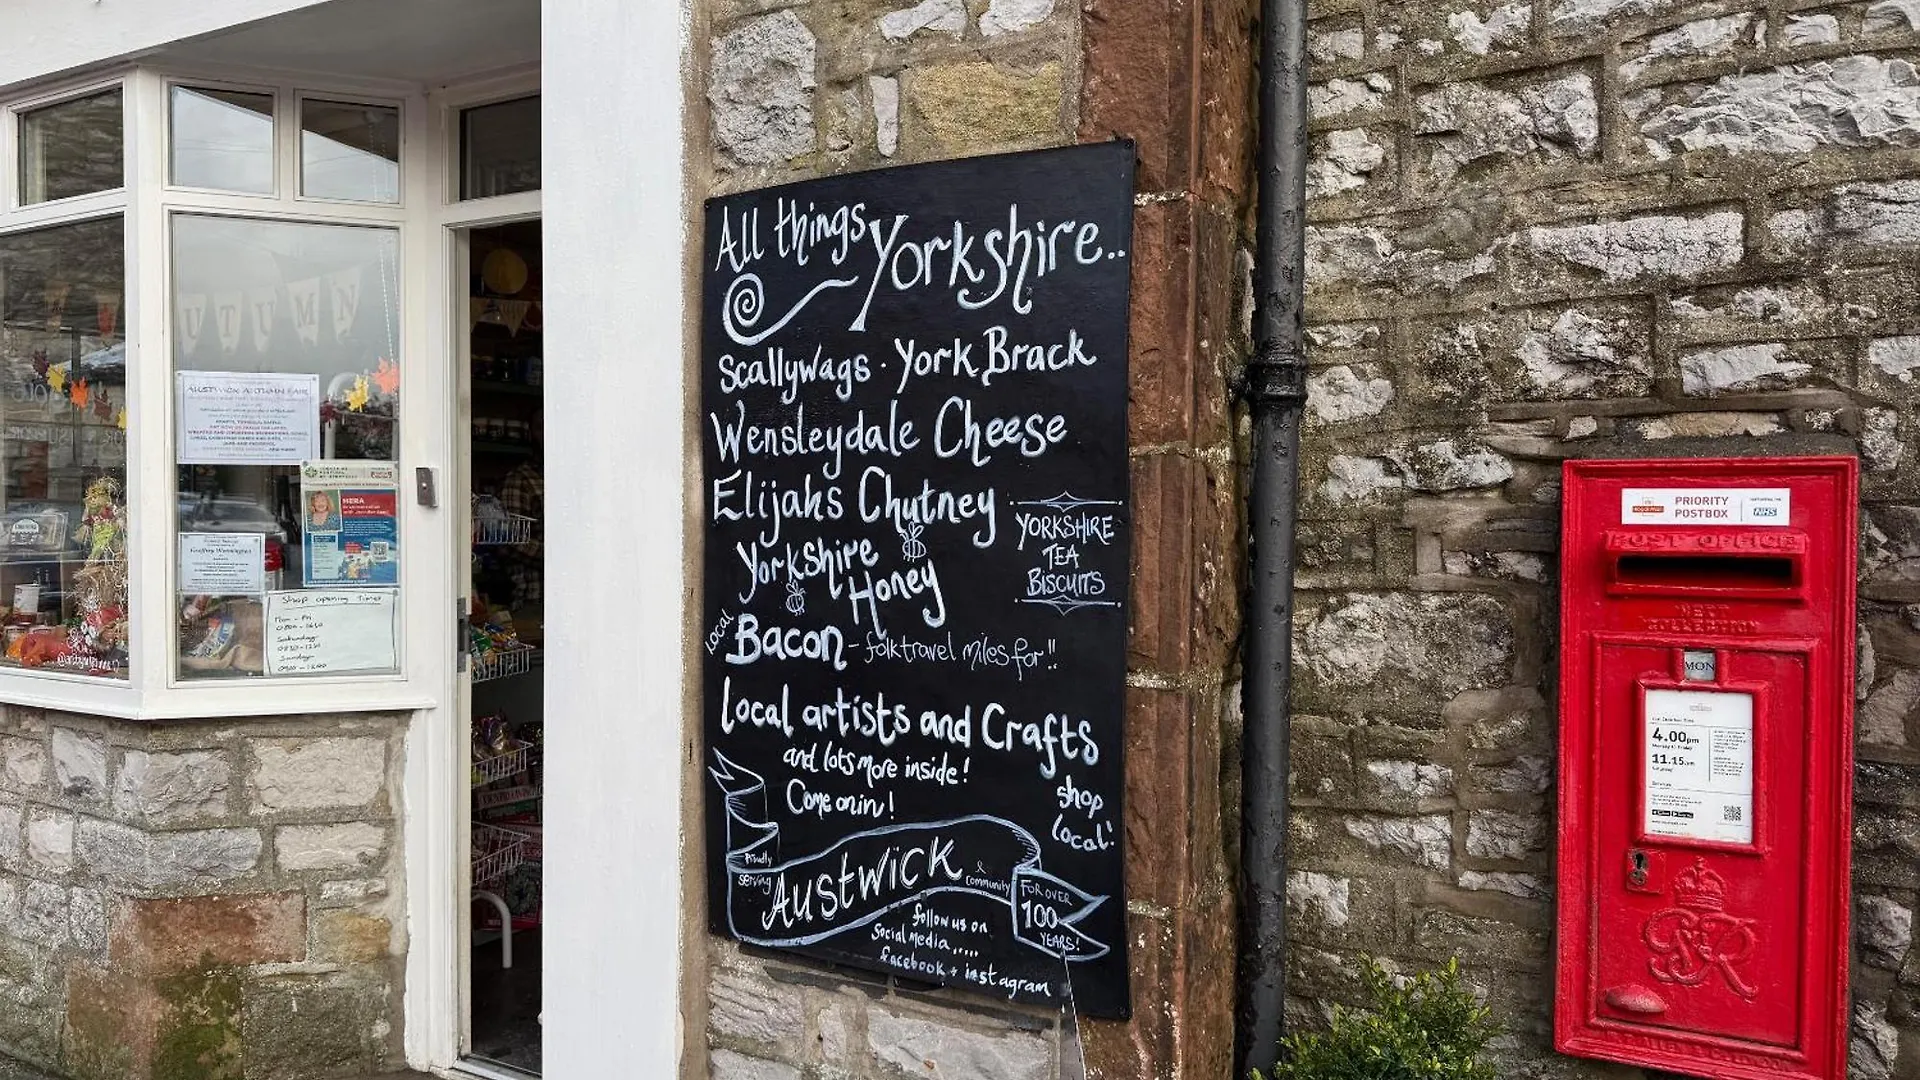 All things
Yorkshire..
Scallywags · York Brack
Wensleydale Cheese
Elijahs Chutney
Yorkshire
Honey
YORKSHIRE
TEA
BISCUITS
local
Bacon - folk travel miles for!!
local artists and Crafts
and lots more inside!
Come on in!
shop
local!
Proudly
serving
AUSTWICK
& community
FOR OVER
100
YEARS!
follow us on
Social media.....
facebook + instagram
AUTUMN
AUSTWICK AUTUMN FAIR
HERA
Shop opening times
Mon - Fri
Saturday
Sunday
Royal Mail
PRIORITY
POSTBOX
NHS
POST OFFICE
NEXT
COLLECTION
MON
4.00pm
Monday to Friday
11.15am
Saturday
GR